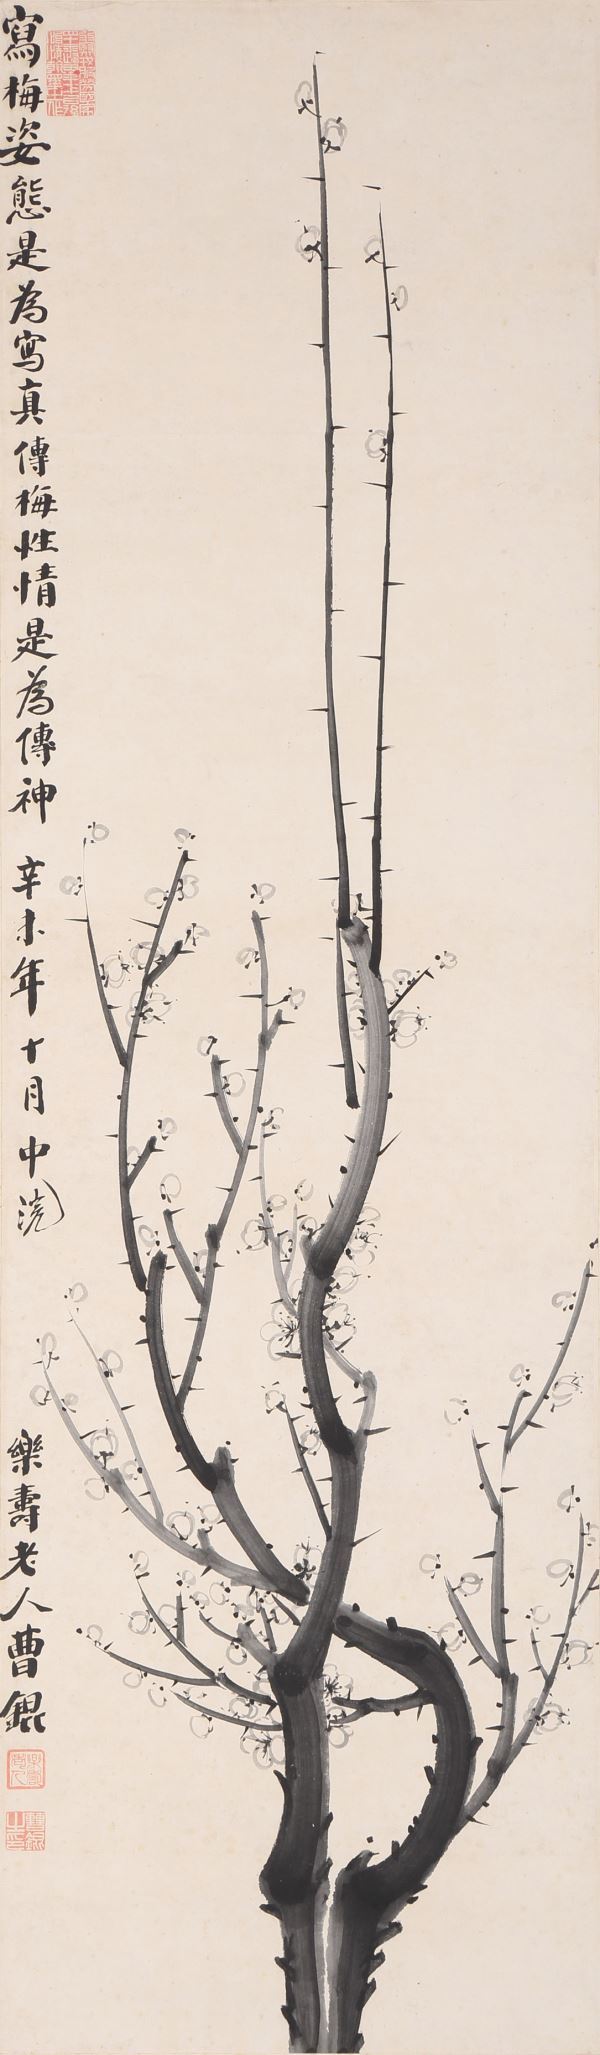 寫梅姿態是為寫真傳梅性情是為傳神 辛未年十月中浣 樂壽老人曹錕